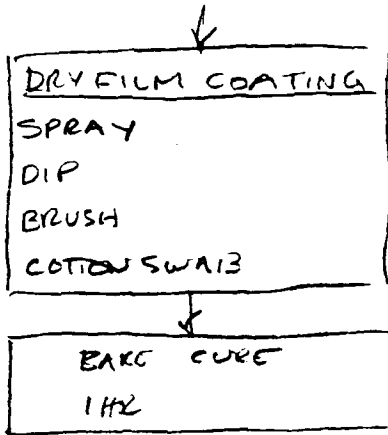 DRY FILM COATING
SPRAY
DIP
BRUSH
COTTON SWAB
BAKE CURE
1 HR